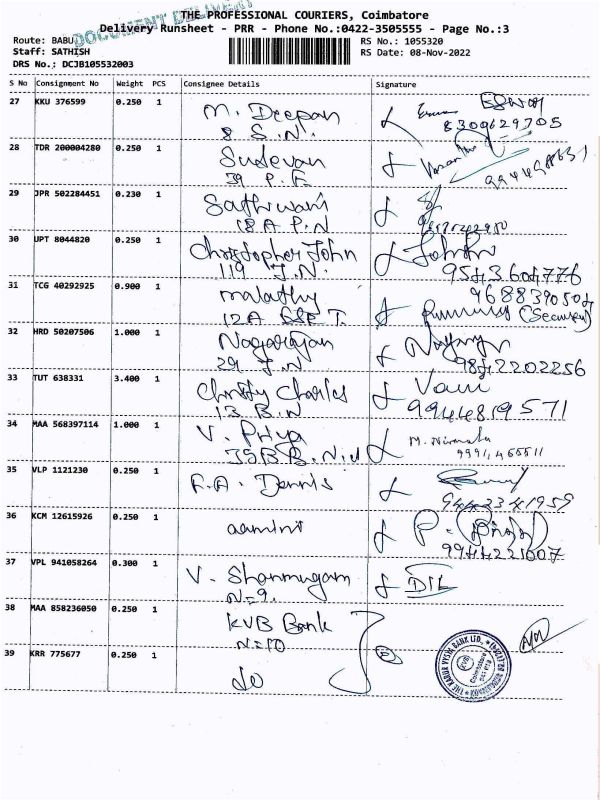 DOCUMENT DELIVERY
THE PROFESSIONAL COURIERS, Coimbatore
Delivery Runsheet - PRR - Phone No.:0422-3505555 - Page No.:3
Route: BABU
RS No.: 1055320
Staff: SATHISH
RS Date: 08-Nov-2022
DRS No.: DCJB105532003
S No Consignment No Weight PCS Consignee Details Signature
27 KKU 376599 0.250 1 M. Deepan
8 S.N. 8309629705
28 TDR 200004280 0.250 1 Sudevan
39 P.F.
29 JPR 502284451 0.230 1
18 A. P. N
30 UPT 8044820 0.250 1 Christopher John
119 J.N. 9543604776
31 TCG 40292925 0.900 1 malathy 9688390504
12A
32 HRD 50207506 1.000 1 Nagarajan
29 J.N 9842202256
33 TUT 638331 3.400 1 Christy Charles
13 B.N 9944819571
34 MAA 568397114 1.000 1 V. Priya M. Nirmala
35B B.N.
35 VLP 1121230 0.250 1 F.A. Dennis
9442341959
36 KCM 12615926 0.250 1 aamini
9944221007
37 VPL 941058264 0.300 1 V. Shanmugam
N=9.
38 MAA 858236050 0.250 1 KVB Bank
N=10
39 KRR 775677 0.250 1 do
THE KARUR VYSYA BANK LTD.